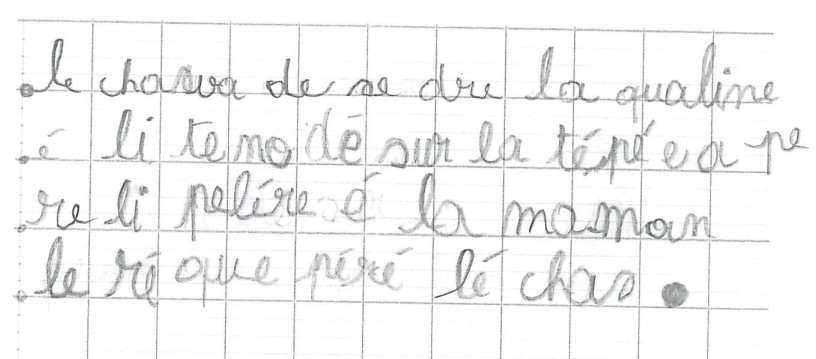 le chawa de se dre la qualine
é li te mo dé sur la tépé e a pe
re li pelire é la maman
le ré que péré lé chas.